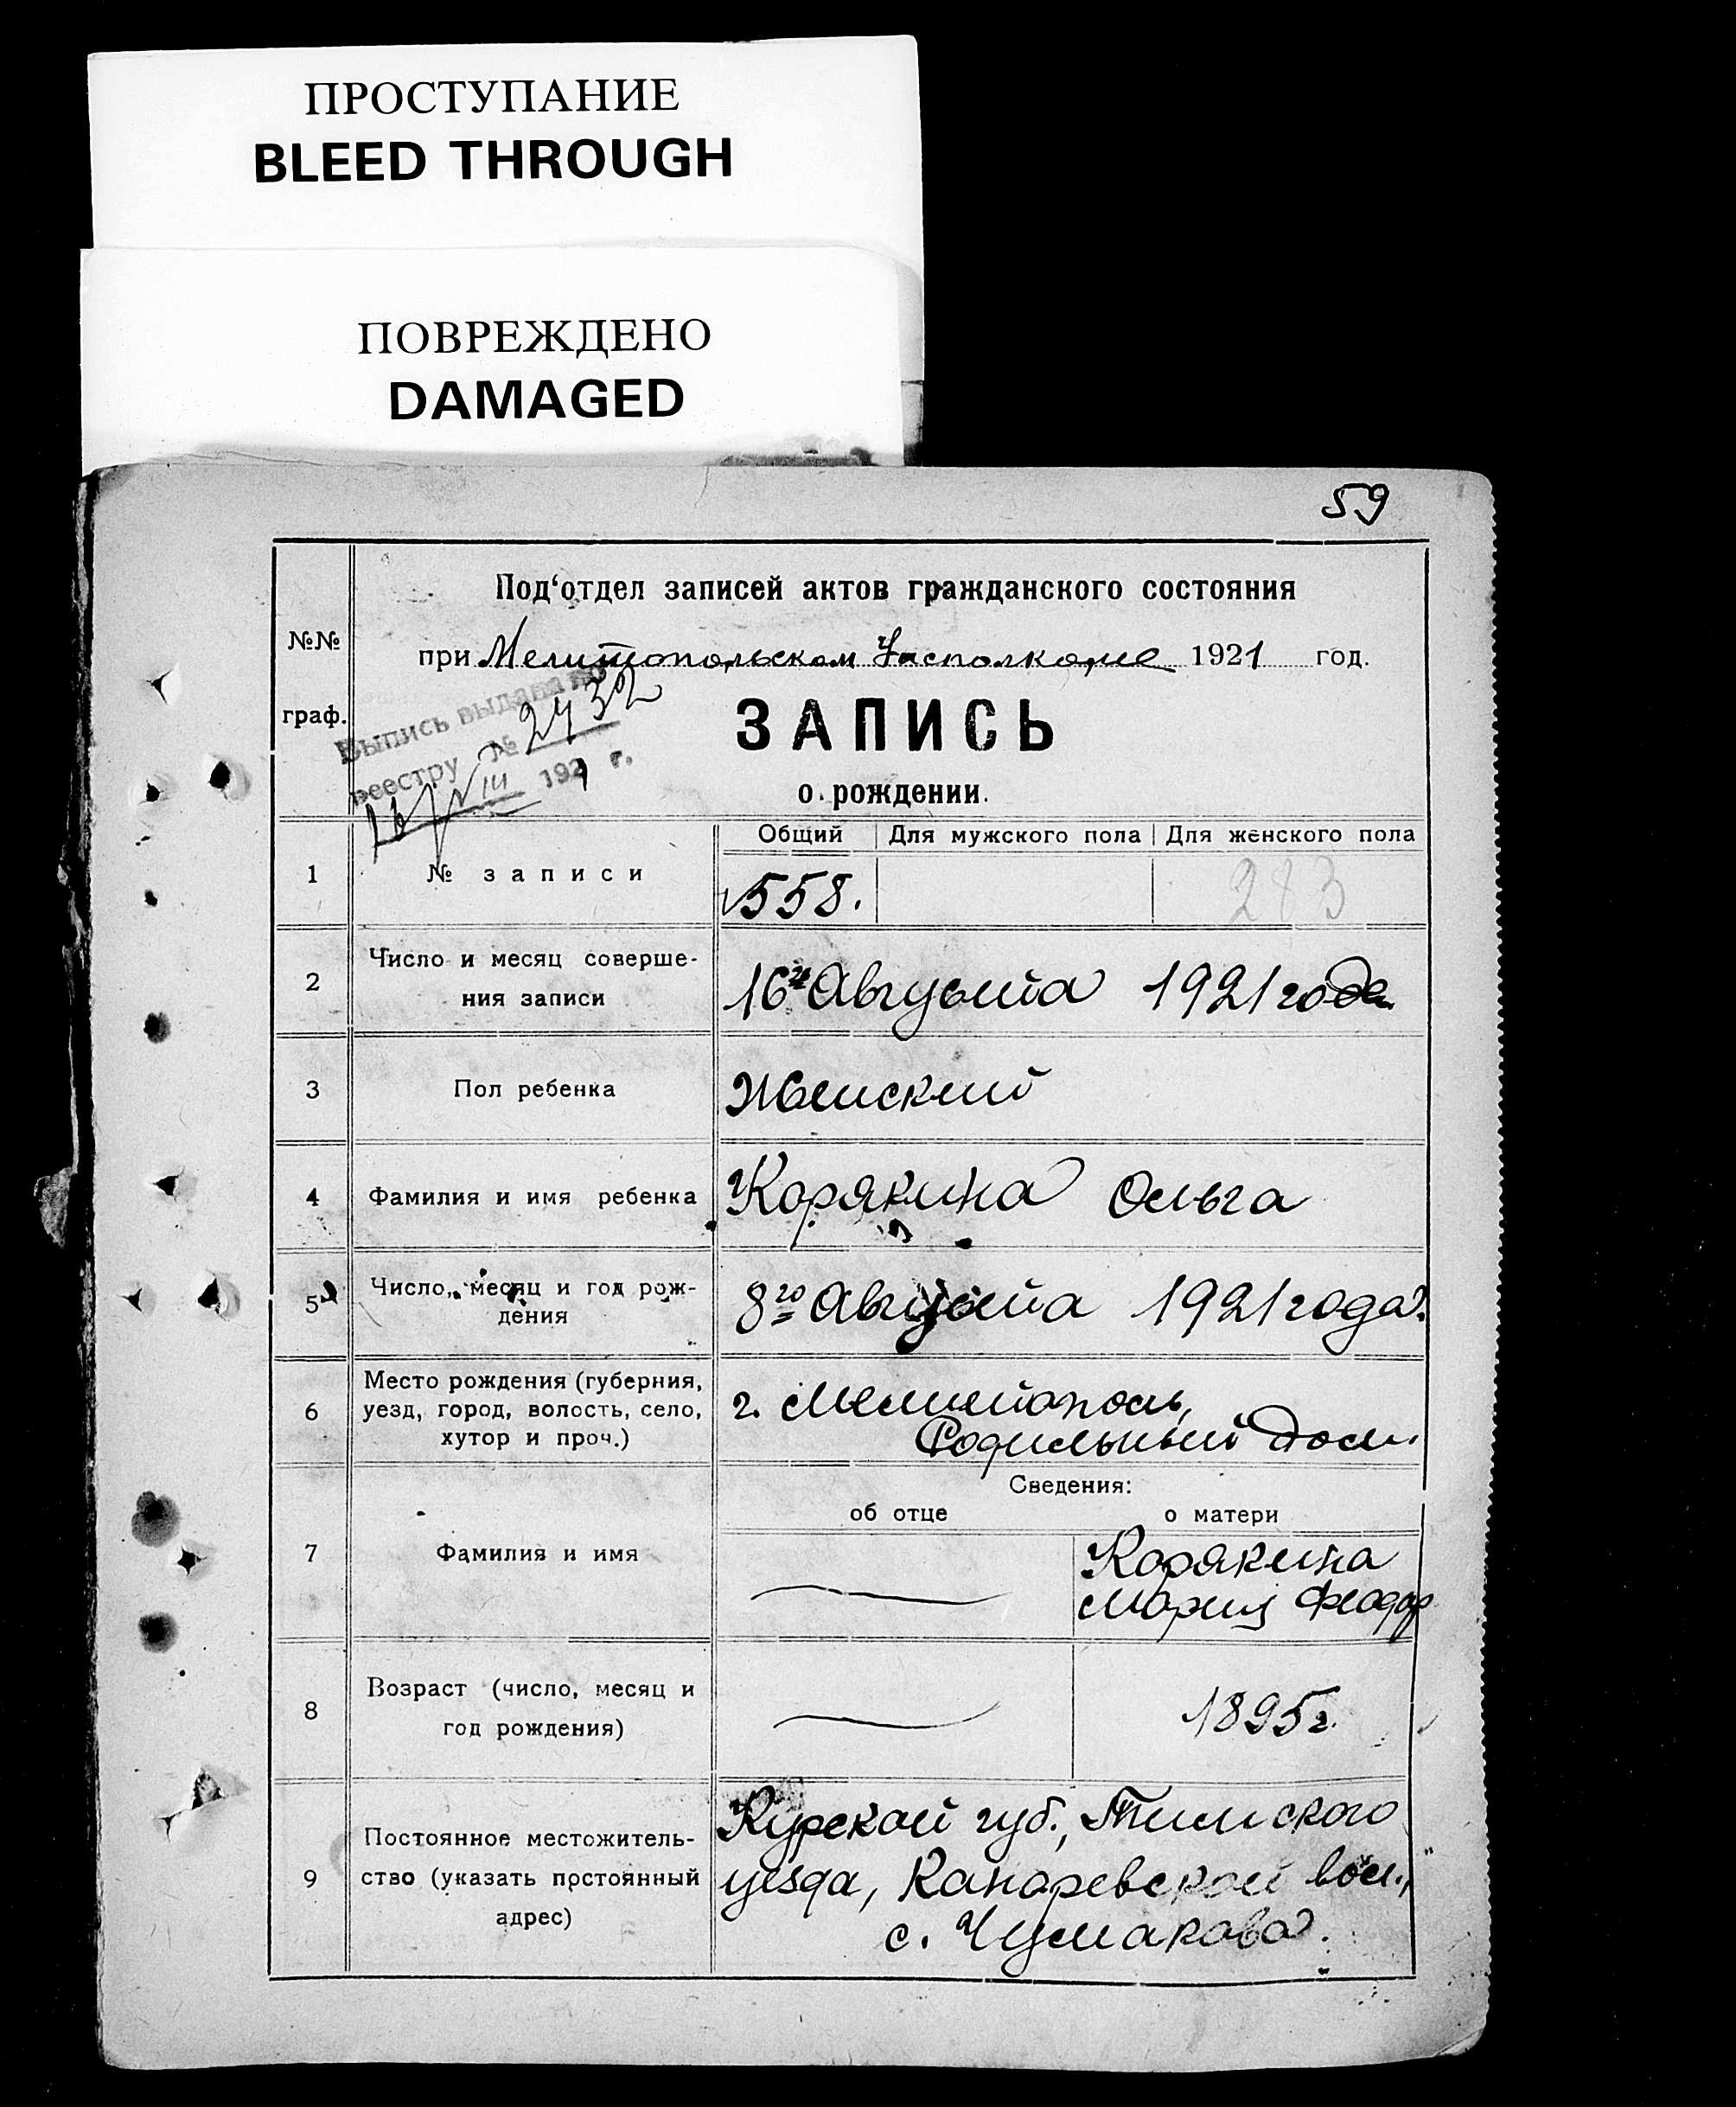 ПРОСТУПАНИЕ
BLEED THROUGH
ПОВРЕЖДЕНО
DAMAGED
59
Под‘отдел записей актов гражданского состояния
№№
при Мелитопольском Уисполкоме 1921 год.
граф.
Выпись выдана по
реестру № 2732
III 192 г.
ЗАПИСЬ
о рождении.
Общий Для мужского пола Для женского пола
1 № записи 558. 283
2 Число и месяц соверше-
ния записи
16го Августа 1921 года
3 Пол ребенка Женский
4 Фамилия и имя ребенка Корякина Ольга
5 Число, месяц и год рож-
дения
8го Августа 1921 года.
6 Место рождения (губерния,
уезд, город, волость, село,
хутор и проч.)
г. Мелитополь,
Родильный Дом.
Сведения:
об отце о матери
7 Фамилия и имя Корякина
Мария Феодор
8 Возраст (число, месяц и
год рождения)
1895 г.
9 Постоянное местожитель-
ство (указать постоянный
адрес)
Курской губ., Тимского
уезда, Канаревской вол.,
с. Чумакова.